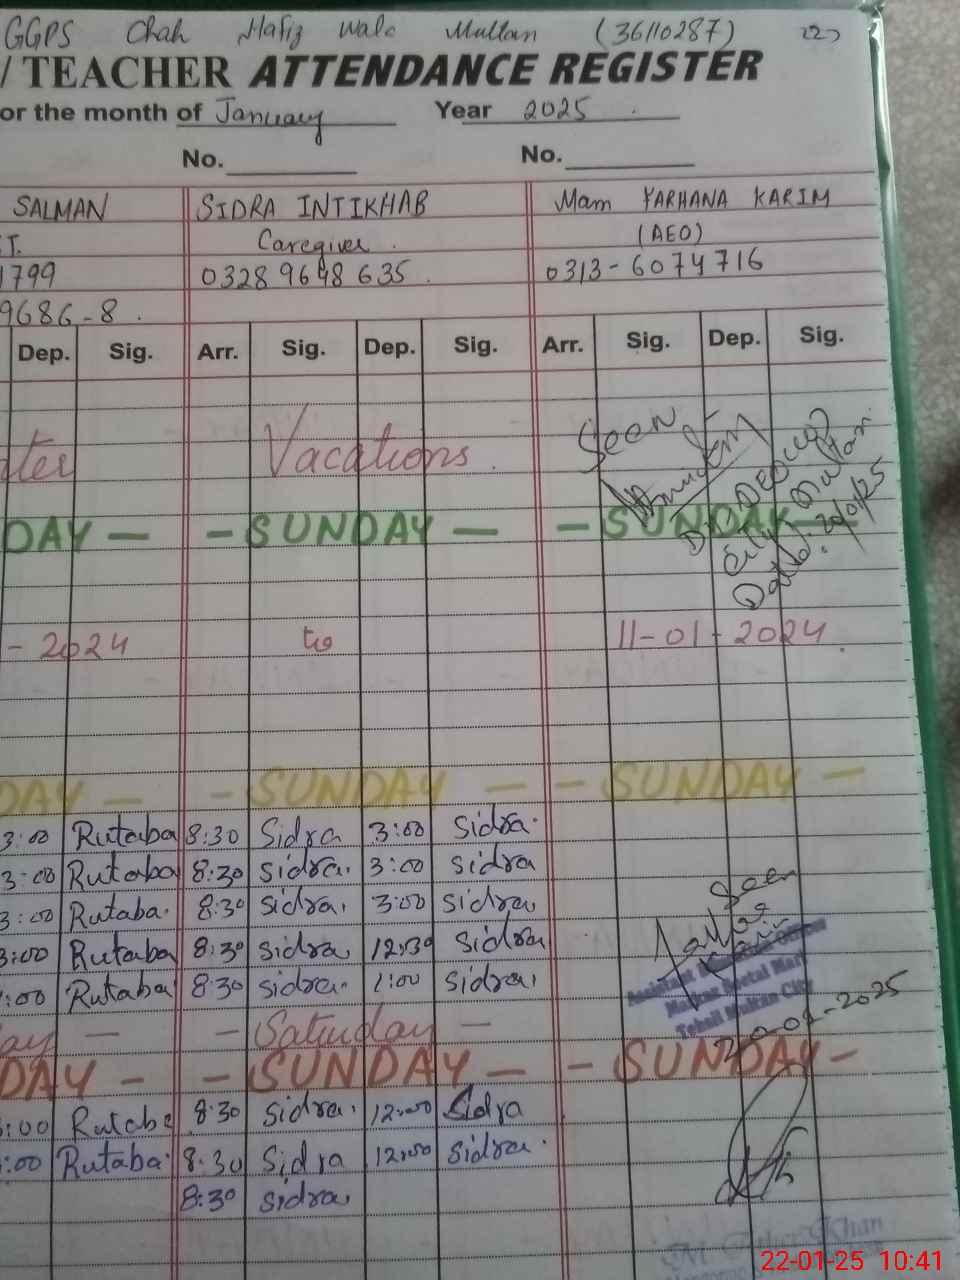 GGPS Chah Hafiz wala Multan (36110287) (22)
/ TEACHER ATTENDANCE REGISTER
or the month of January Year 2025
No. No.
SALMAN SIDRA INTIKHAB Mam FARHANA KARIM
T. Caregiver. (AEO)
1799 0328 9648 635. 0313-6074716
9686-8.
Dep. Sig. Arr. Sig. Dep. Sig. Arr. Sig. Dep. Sig.
Seen
nter Vacations.
DEO
City Multan
DAY — — SUNDAY — — SUNDAY —
Dated: 20/01/25
- 2024 to 11-01-2024.
DAY — — SUNDAY — — SUNDAY —
3:00 Rutaba 8:30 Sidra 3:00 Sidra.
3:00 Rutaba 8:30 Sidra. 3:00 Sidra
3:00 Rutaba. 8:30 Sidra. 3:00 Sidra
Seen
3:00 Rutaba 8:30 Sidra 12:30 Sidra
Assistant Officer
:00 Rutaba 8:30 Sidra. 1:00 Sidra.
Markaz Mart
Tehsil Multan City
ay — — Saturday —
-2025
DAY — — SUNDAY — — SUNDAY —
:00 Rutaba 8:30 Sidra. 12:00 Sidra
:00 Rutaba. 8:30 Sidra 12:00 Sidra.
8:30 Sidra
Khan
22-01-25 10:41